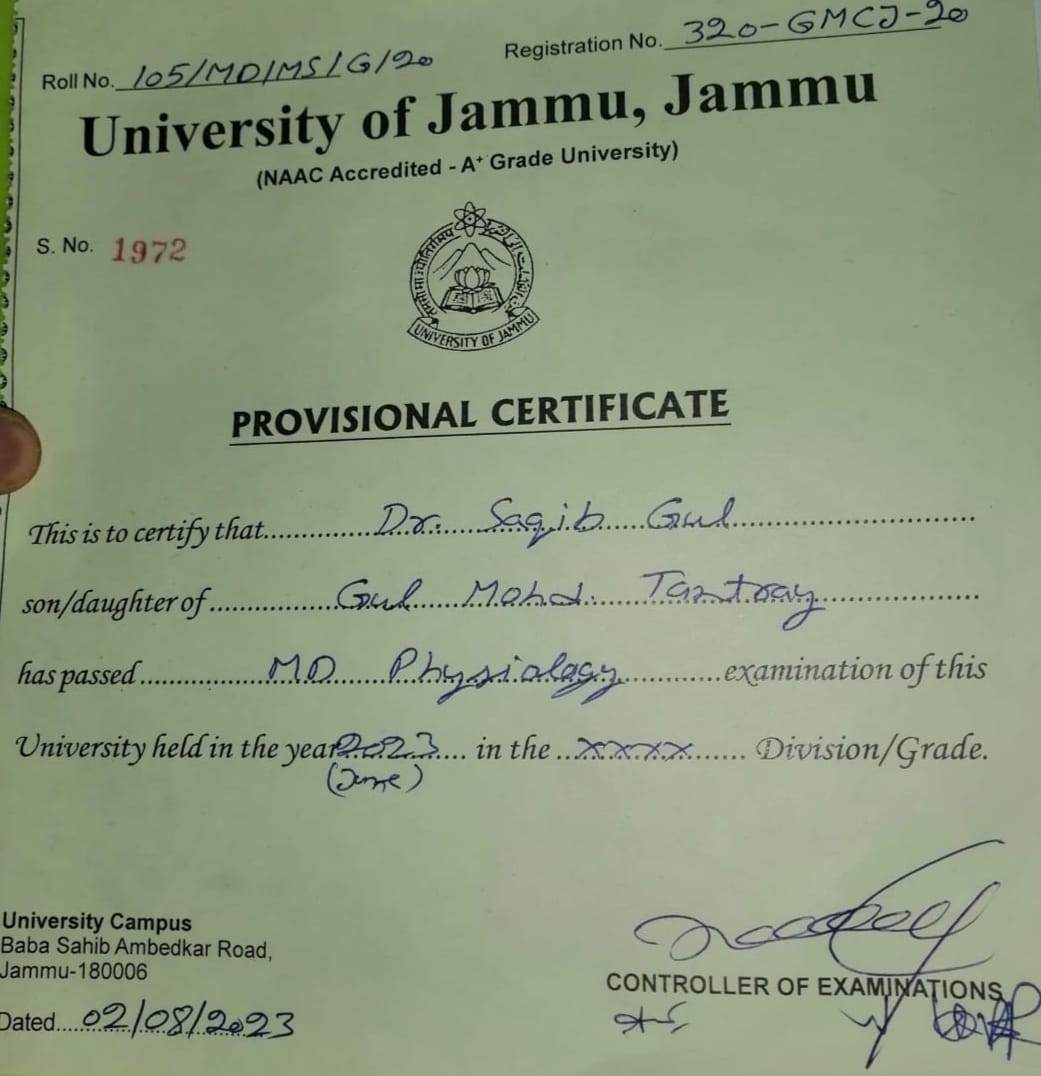 Roll No. 105/MD/MS/G/20
Registration No. 320-GMCJ-20
University of Jammu, Jammu
(NAAC Accredited - A+ Grade University)
S. No. 1972
UNIVERSITY OF JAMMU
PROVISIONAL CERTIFICATE
This is to certify that Dr. Saqib Gul
son/daughter of Gul Mohd. Tantray
has passed MD Physiology examination of this
University held in the year 2023 in the xxxx Division/Grade.
(June)
University Campus
Baba Sahib Ambedkar Road,
Jammu-180006
Dated 02/08/2023
CONTROLLER OF EXAMINATIONS